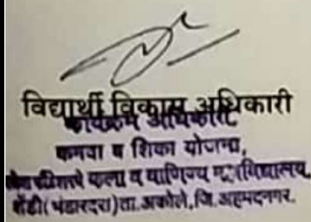 विद्यार्थी विकास अधिकारी
कार्यक्रम अधिकारी
कमवा व शिका योजना,
कला व वाणिज्य महाविद्यालय
शेंडी (भंडारदरा) ता. अकोले, जि. अहमदनगर.